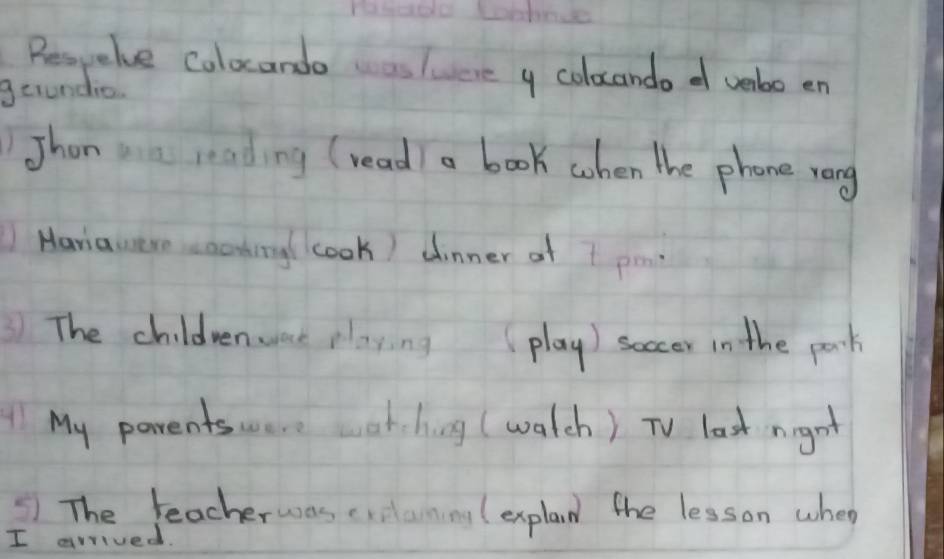 Pasado Continuo
Resuelve colocando was/were y colocando el verbo en
gerundio.
1) Jhon was reading (read) a book when the phone rang
2) Maria were cooking (cook) dinner at 7 pm.
3) The children was playing (play) soccer in the park
4) My parents were watching (watch) TV last night
5) The teacher was explaining (explain) the lesson when
I arrived.